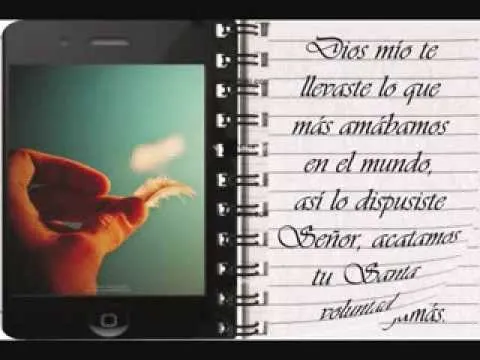 Dios mío te
llevaste lo que
más amábamos
en el mundo,
así lo dispusiste
Señor, acatamos
tu Santa
voluntad
jamás.